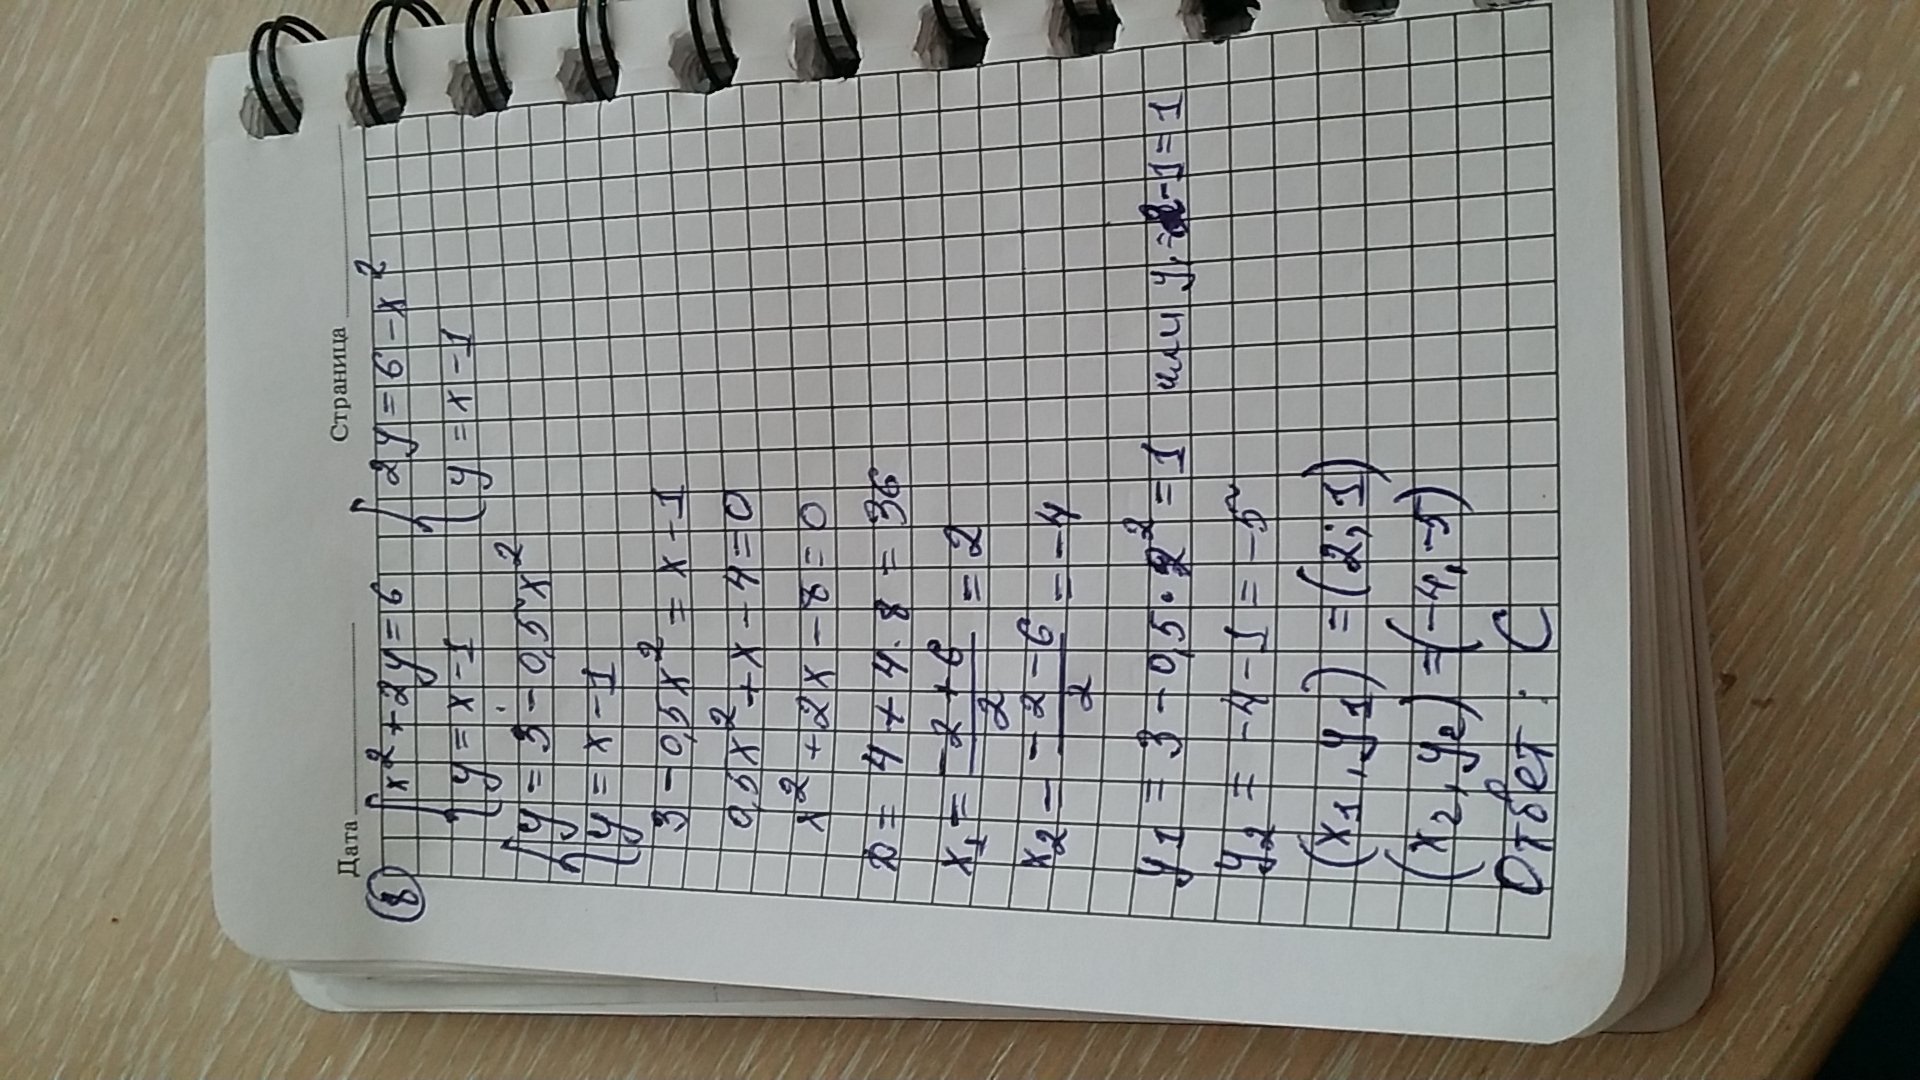 Дата Страница
8 { x² + 2y = 6 { 2y = 6 - x²
y = x - 1 y = x - 1
{ y = 3 - 0,5x²
y = x - 1
3 - 0,5x² = x - 1
0,5x² + x - 4 = 0
x² + 2x - 8 = 0
D = 4 + 4·8 = 36
x1 = (-2+6)/2 = 2
x2 - (-2-6)/2 = -4
y1 = 3 - 0,5·2² = 1 или y1=2-1=1
y2 = -4-1 = -5
(x1, y1) = (2; 1)
(x2, y2) = (-4, -5)
Ответ: C